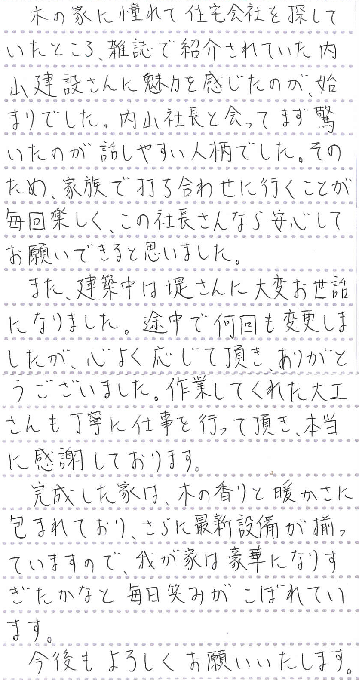 木の家に憧れて住宅会社を探して
いたところ、雑誌で紹介されていた内
山建設さんに魅力を感じたのが、始
まりでした。内山社長と会ってまず驚
いたのが話しやすい人柄でした。その
ため、家族で打ち合わせに行くことが
毎回楽しく、この社長さんなら安心して
お願いできると思いました。
また、建築中は堤さんに大変お世話
になりました。途中で何回も変更しま
したが、心よく応じて頂き、ありがと
うございました。作業してくれた大工
さんも丁寧に仕事を行って頂き、本当
に感謝しております。
完成した家は、木の香りと暖かさに
包まれており、さらに最新設備が揃っ
ていますので、我が家は豪華になりす
ぎたかなと毎日笑みがこぼれてい
ます。
今後もよろしくお願いいたします。